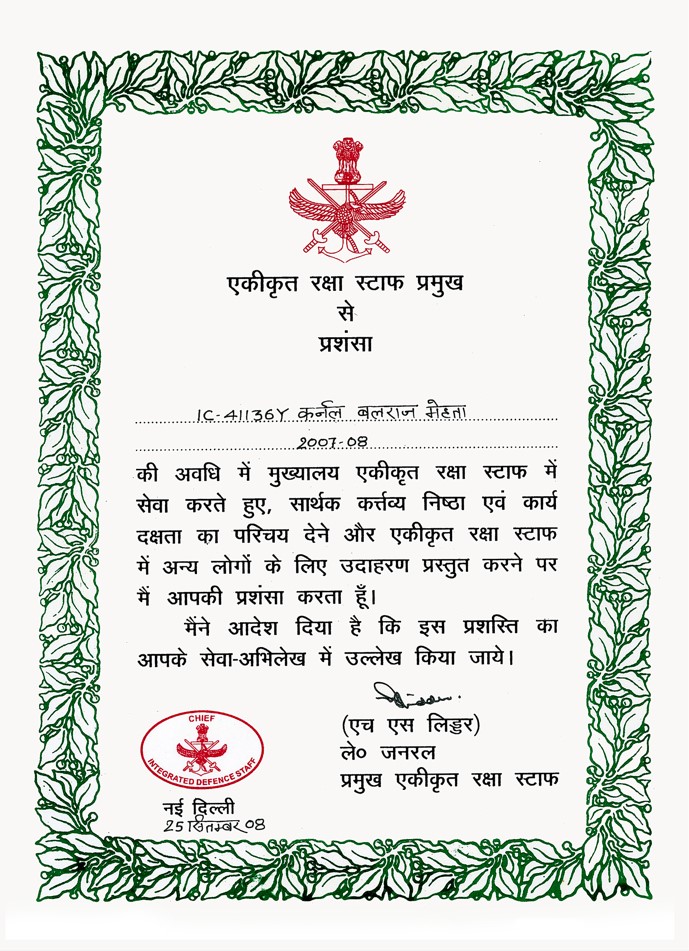 एकीकृत रक्षा स्टाफ प्रमुख
से
प्रशंसा
IC-41136Y कर्नल बलराज मेहता
2007-08
की अवधि में मुख्यालय एकीकृत रक्षा स्टाफ में
सेवा करते हुए, सार्थक कर्त्तव्य निष्ठा एवं कार्य
दक्षता का परिचय देने और एकीकृत रक्षा स्टाफ
में अन्य लोगों के लिए उदाहरण प्रस्तुत करने पर
मैं आपकी प्रशंसा करता हूँ।
मैंने आदेश दिया है कि इस प्रशस्ति का
आपके सेवा-अभिलेख में उल्लेख किया जाये।
(एच एस लिड्डर)
ले० जनरल
प्रमुख एकीकृत रक्षा स्टाफ
CHIEF
INTEGRATED DEFENCE STAFF
नई दिल्ली
25 सितम्बर 08